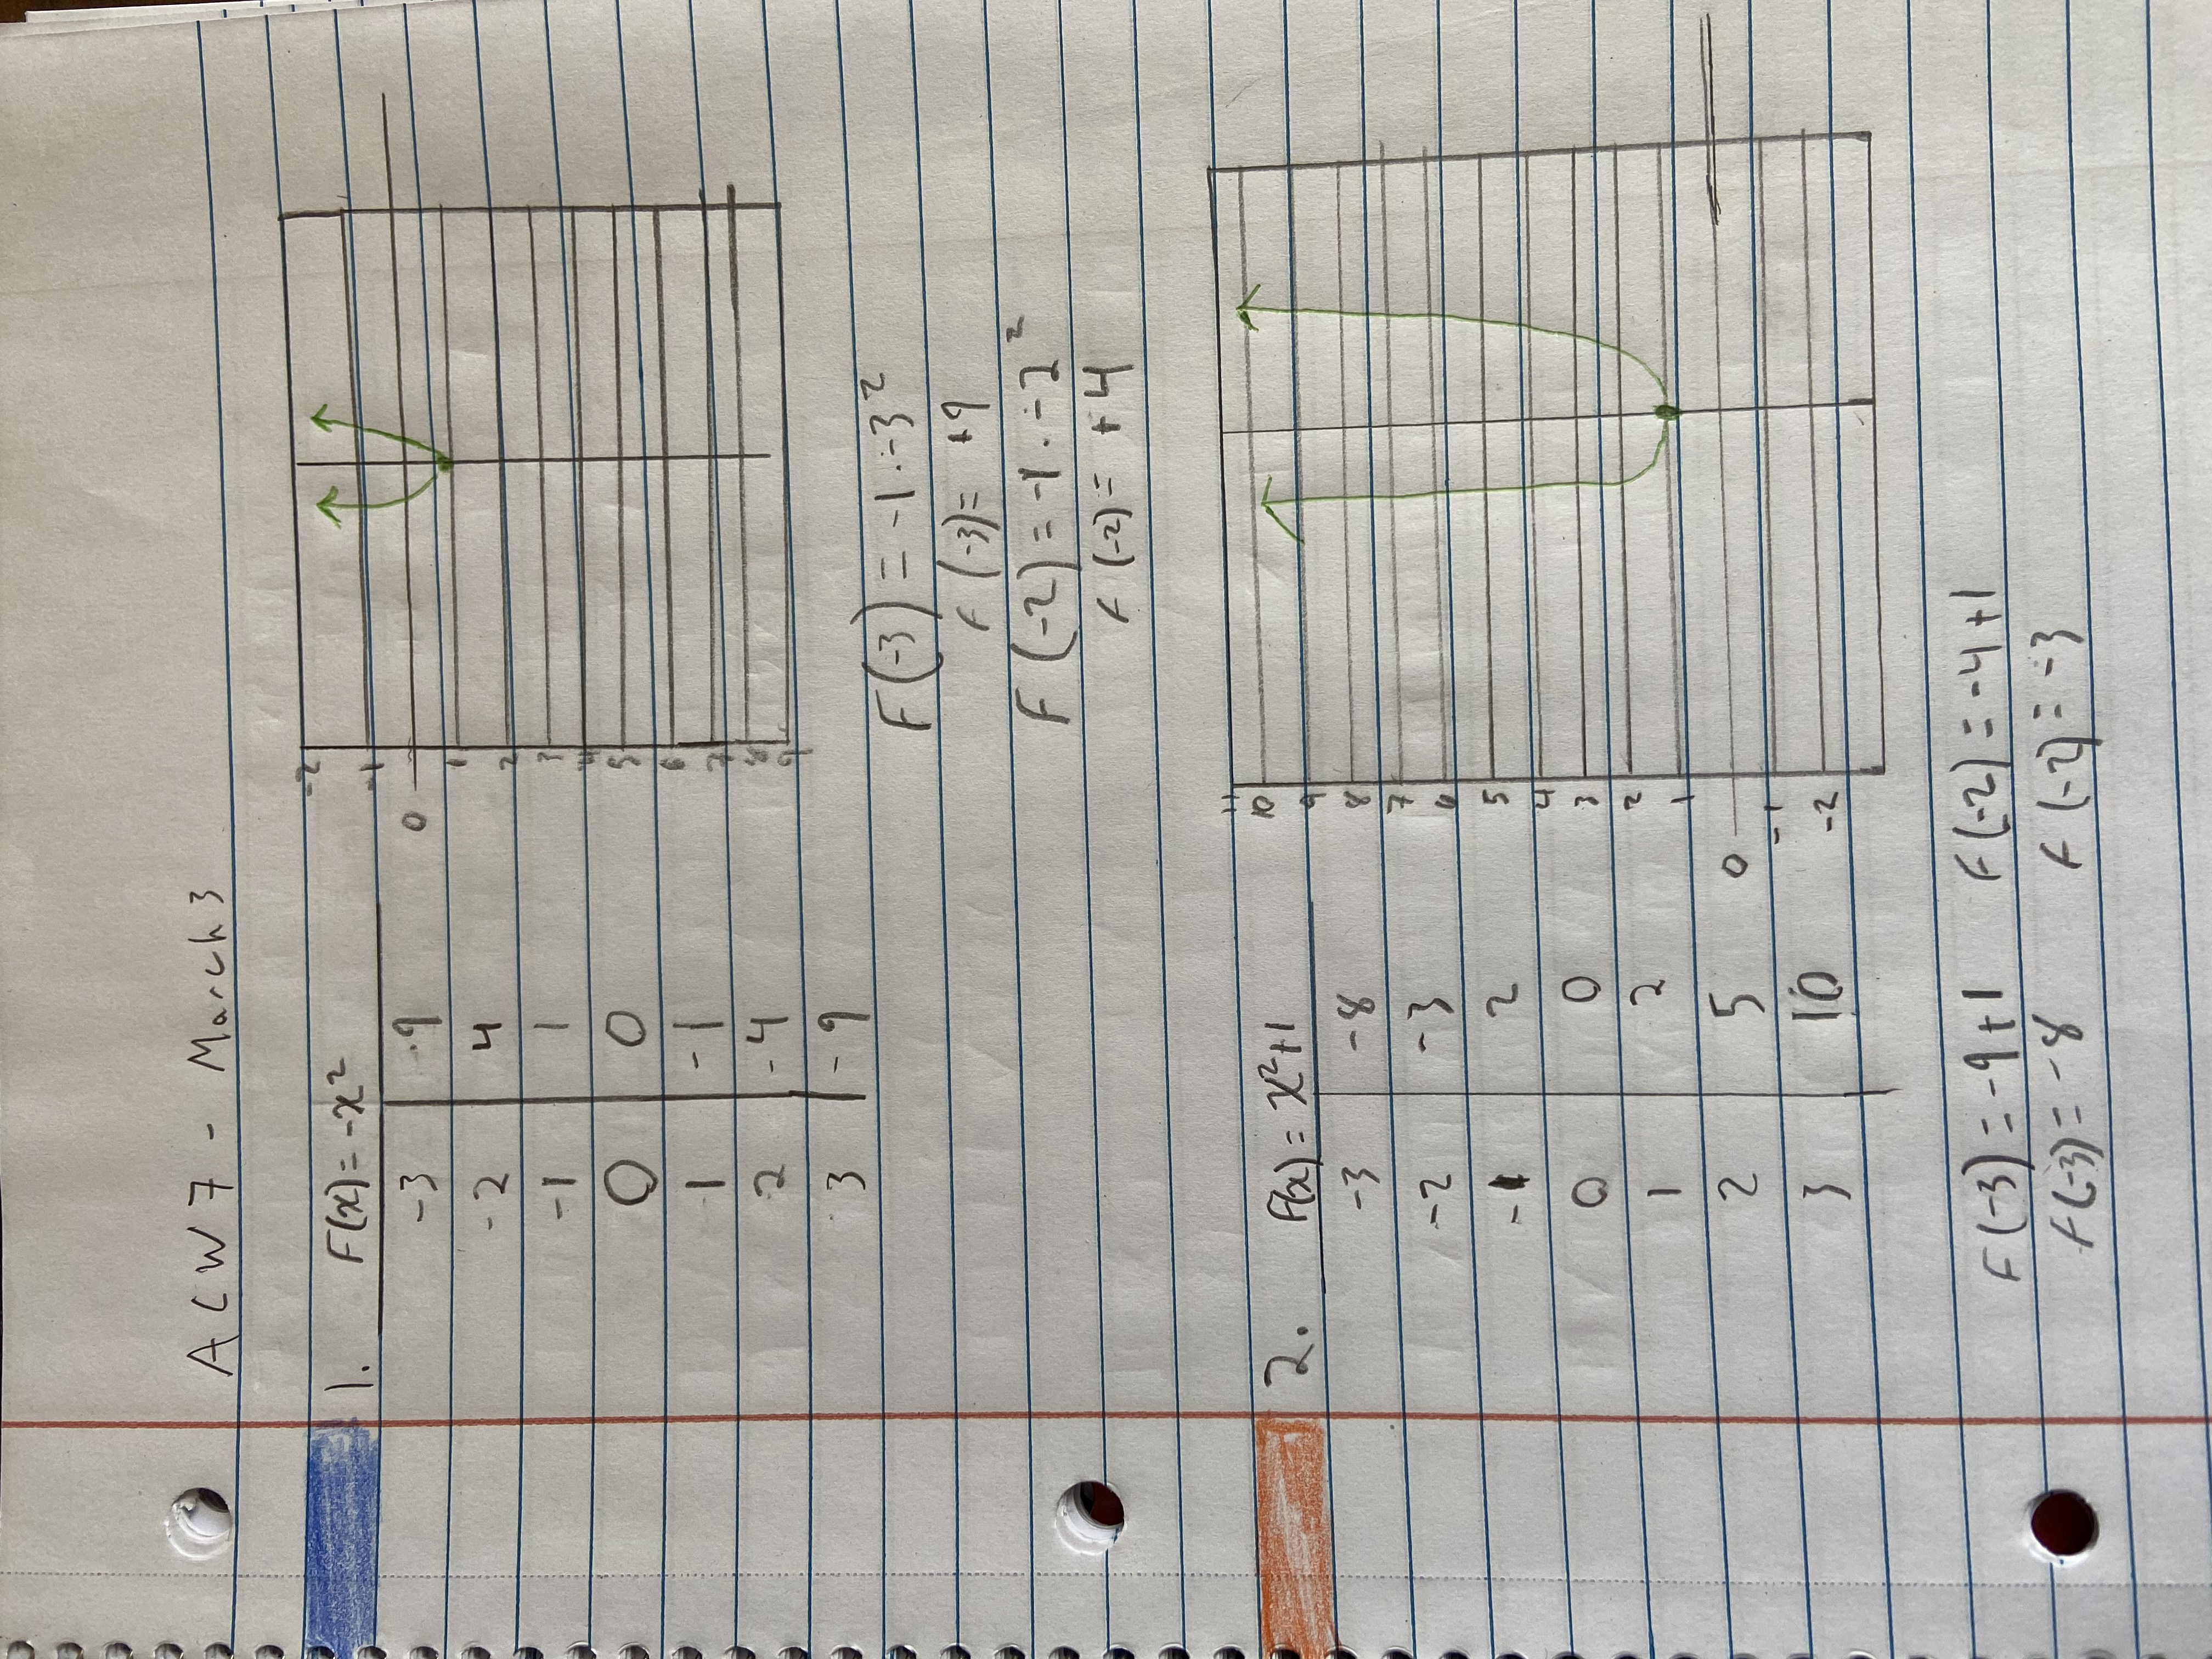 ACW7 - March 3
1. F(x) = -x²
-3 9
-2 4
-1 1
0 0
1 -1
2 -4
3 -9
-2
-1
0
1
2
3
4
5
6
7
8
9
F(-3) = -1 · -3²
F(-3) = +9
F(-2) = -1 · -2²
F(-2) = +4
2. F(x) = x²+1
-3 -8
-2 -3
-1 2
0 0
1 2
2 5
3 10
11
10
9
8
7
6
5
4
3
2
1
0
-1
-2
F(-3) = -9+1 F(-2) = -4+1
F(-3) = -8 F(-2) = -3